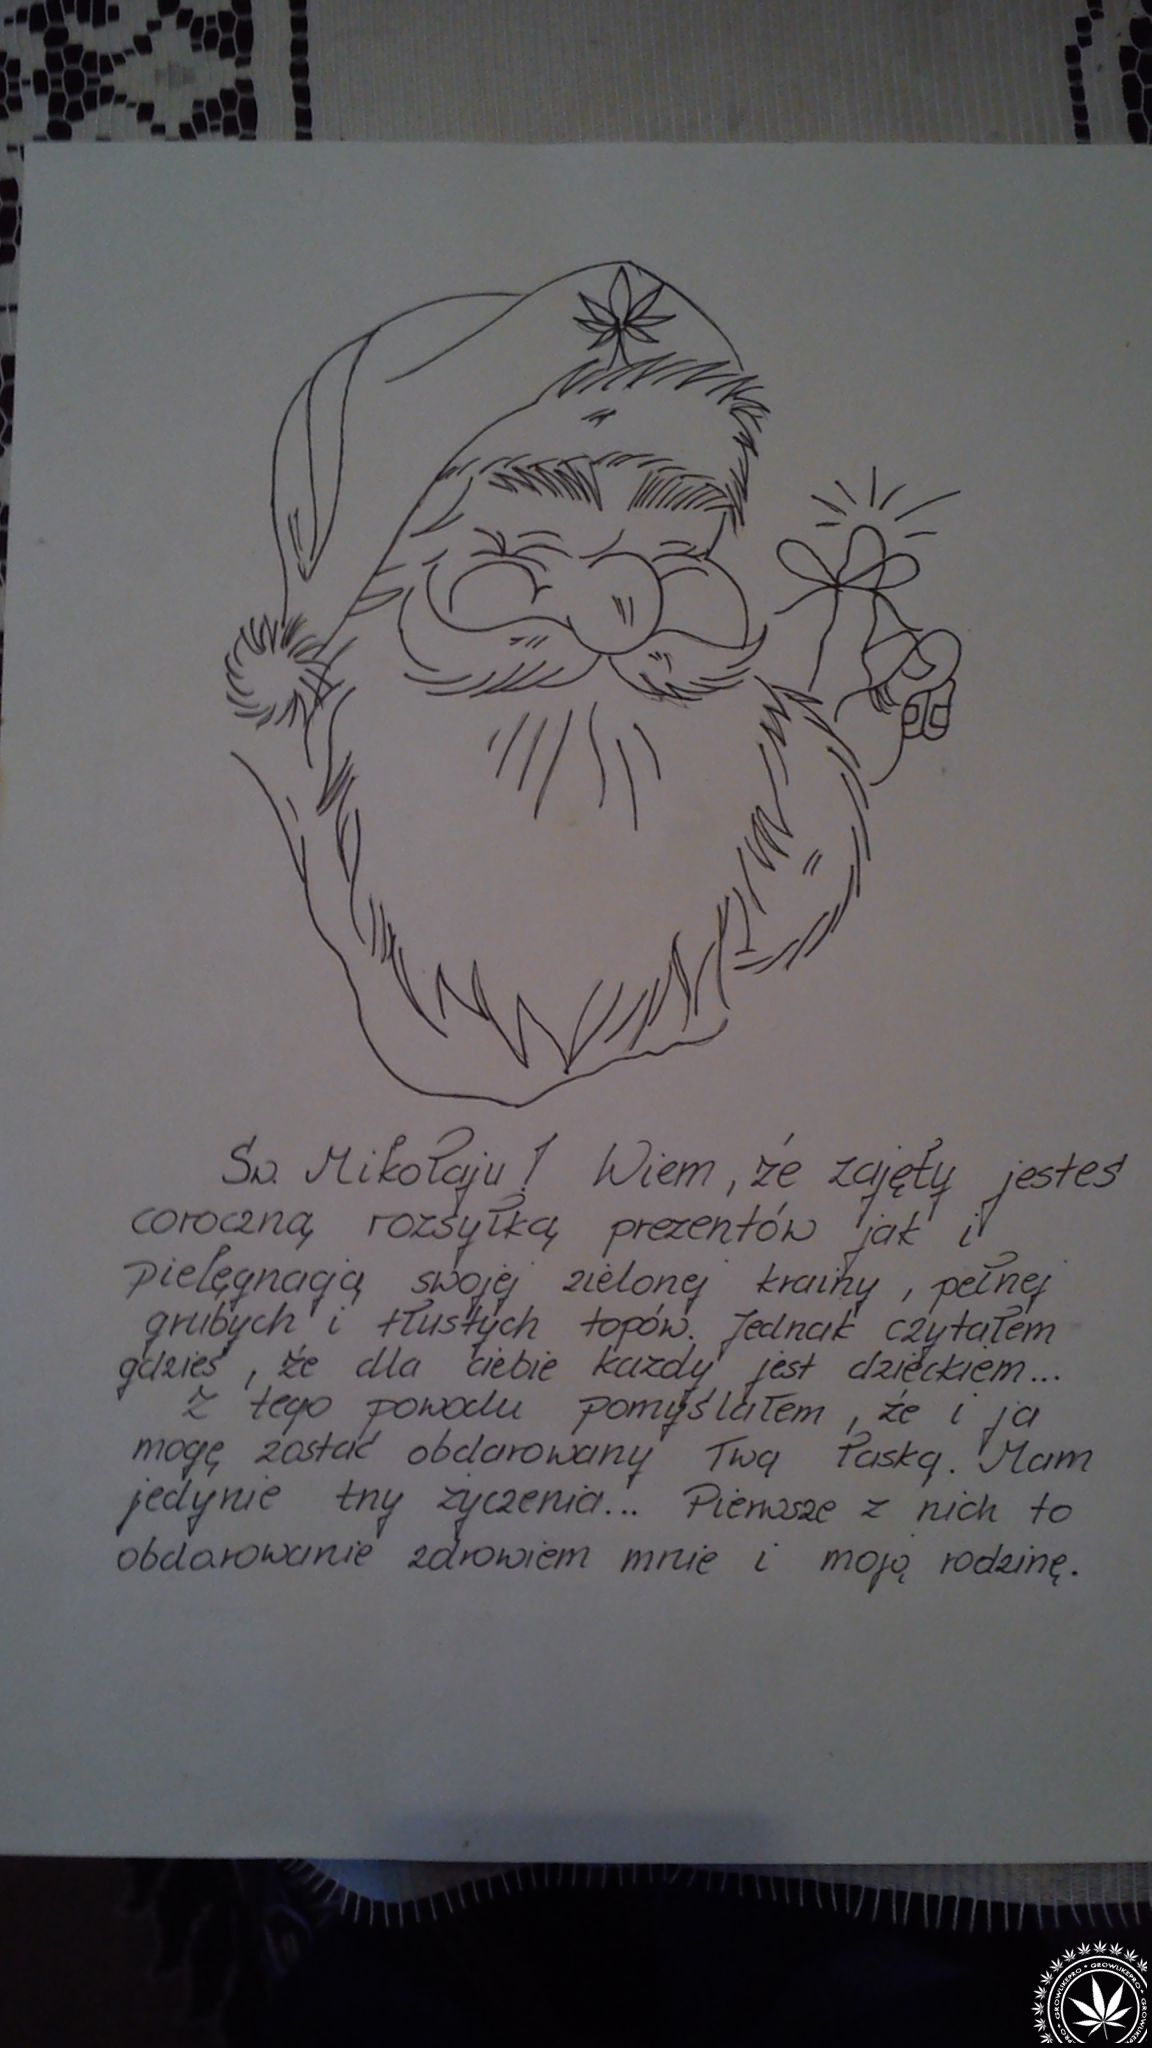 Św. Mikołaju! Wiem, że zajęty jesteś
coroczną rozsyłką prezentów jak i
pielęgnacją swojej zielonej krainy, pełnej
grubych i tłustych topów. Jednak czytałem
gdzieś, że dla ciebie każdy jest dzieckiem...
Z tego powodu pomyślałem, że i ja
mogę zostać obdarowany Twą łaską. Mam
jedynie tny życzenia... Pierwsze z nich to
obdarowanie zdrowiem mnie i moją rodzinę.
GROWLIKEPRO • GROWLIKEPRO